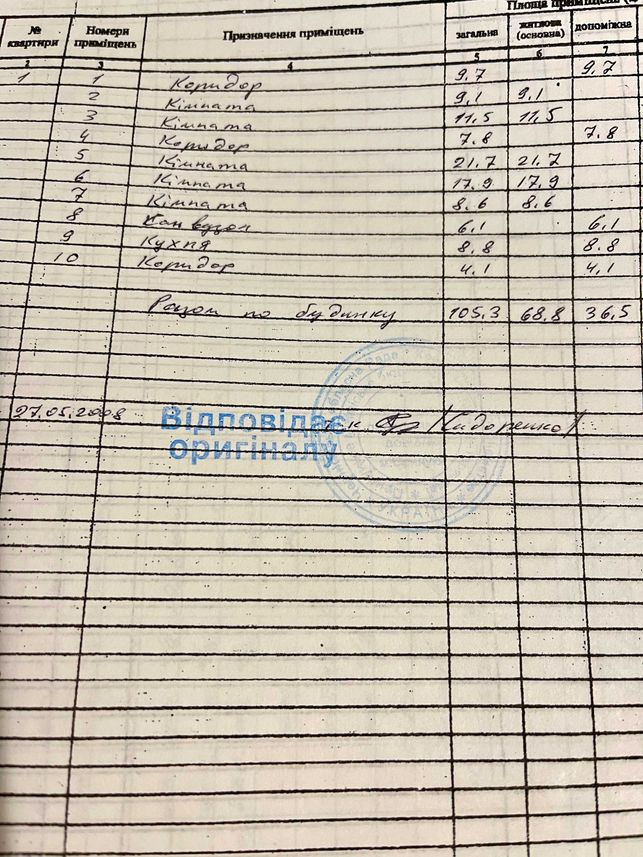 Площа приміщень
№ квартири Номери приміщень Призначення приміщень загальна житлова (основна) допоміжна
2 3 4 5 6 7
1 1 Коридор 9,7 9,7
2 Кімната 9,1 9,1
3 Кімната 11,5 11,5
4 Коридор 7,8 7,8
5 Кімната 21,7 21,7
6 Кімната 17,9 17,9
7 Кімната 8,6 8,6
8 Сан вузол 6,1 6,1
9 Кухня 8,8 8,8
10 Коридор 4,1 4,1
Разом по будинку 105,3 68,8 36,5
27.05.2008
Відповідає
оригіналу
УКРАЇНА